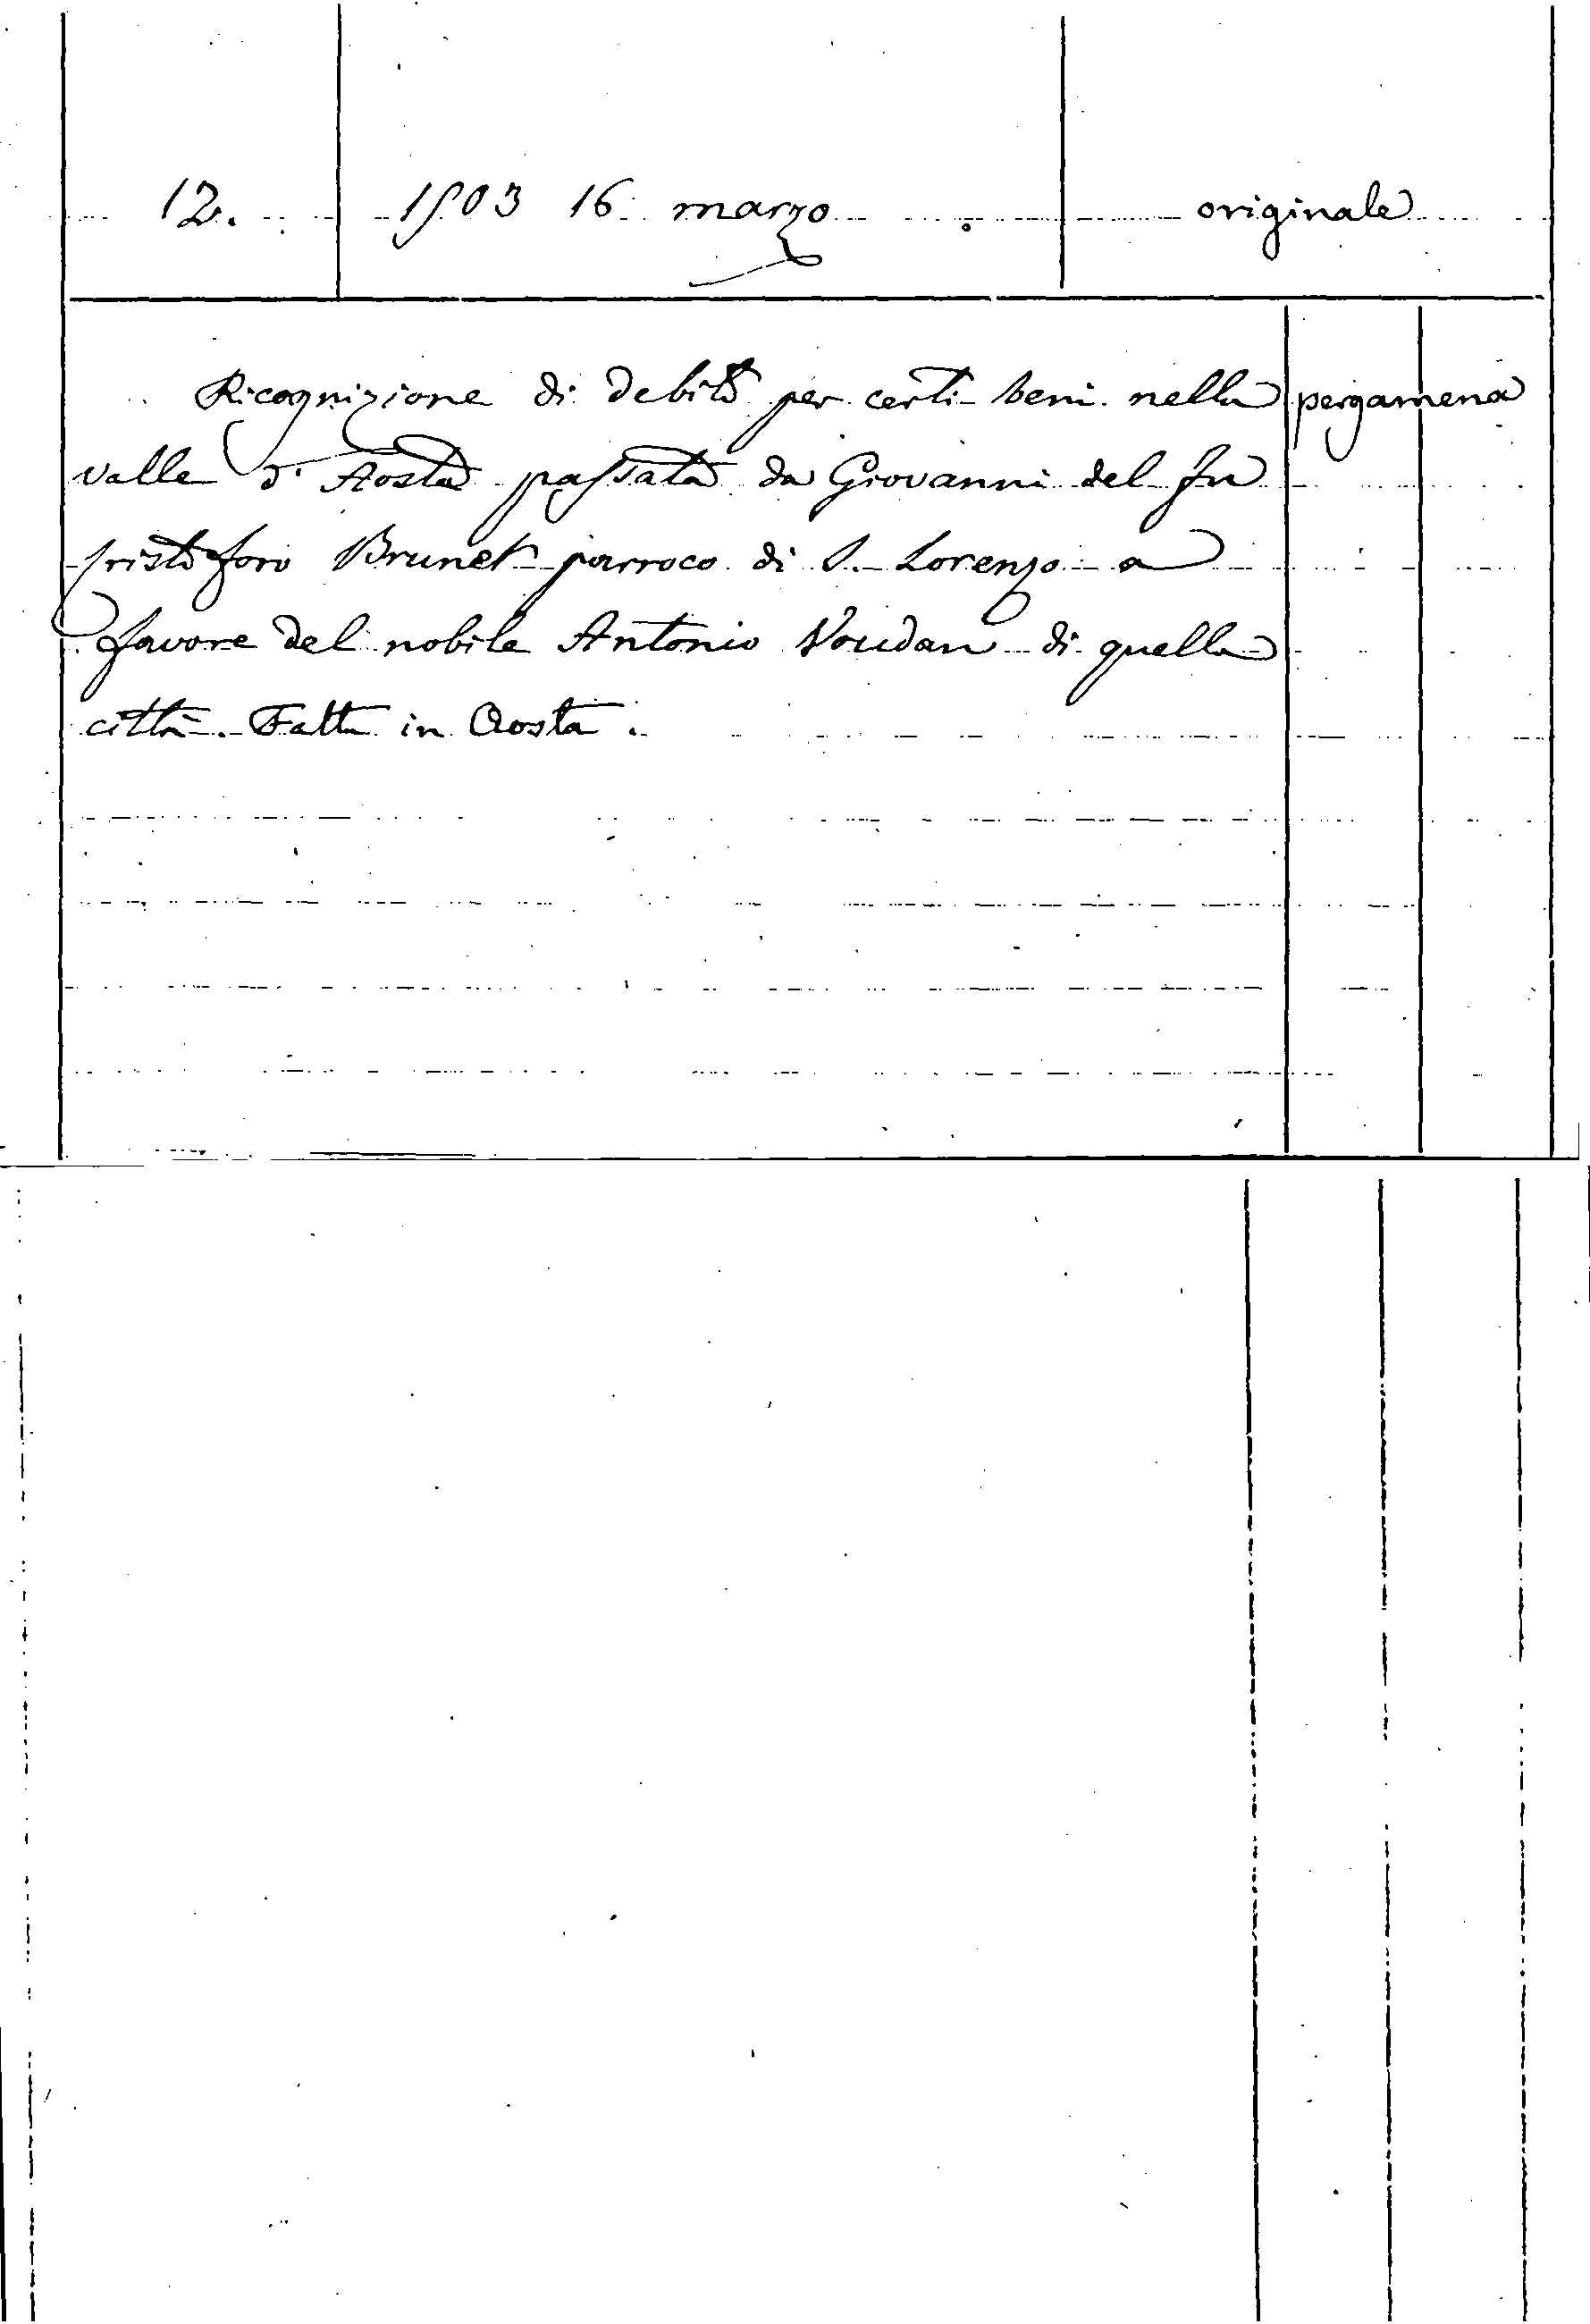 12. 1503 16 marzo originale
Ricognizione di debito per certi beni nella pergamena
valle d'Aosta passata da Giovanni del fu
Cristoforo Brunet parroco di S. Lorenzo a
favore del nobile Antonio Voudan di quella
città. Fatta in Aosta.